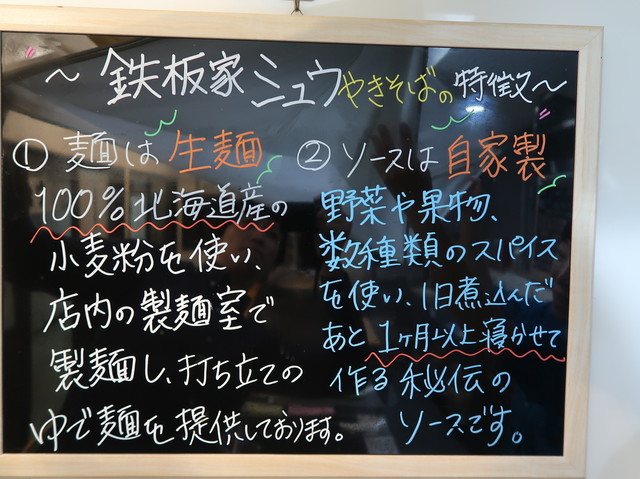 ～鉄板家ミュウやきそばの特徴～
① 麺は生麺
100%北海道産の
小麦粉を使い、
店内の製麺室で
製麺し、打ち立ての
ゆで麺を提供しております。
② ソースは自家製
野菜や果物、
数種類のスパイス
を使い、1日煮込んだ
あと1ヶ月以上寝かせて
作る秘伝の
ソースです。